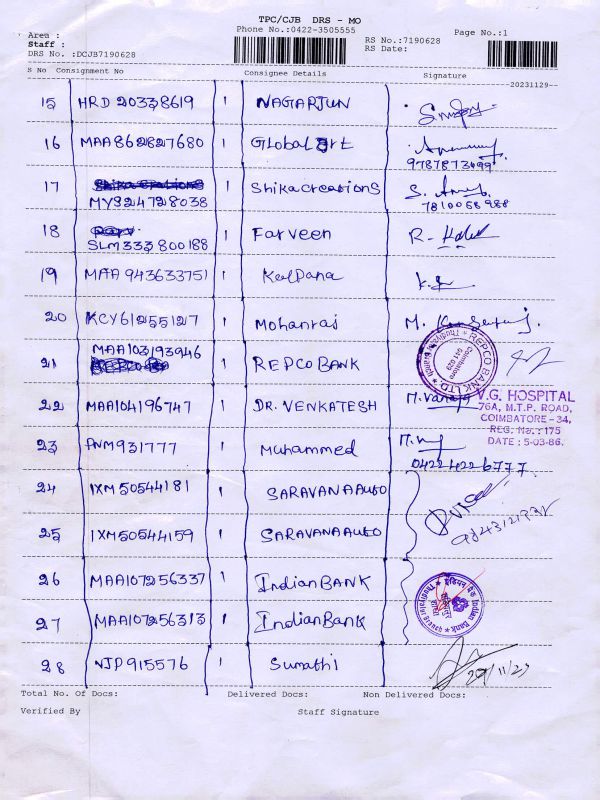 TPC/CJB DRS - MO
Area :
Phone No.:0422-3505555
RS No.:7190628
Page No.:1
Staff :
RS Date:
DRS No. :DCJB7190628
S No Consignment No Consignee Details Signature
20231129
15 HRD 20338619 1 NAGARJUN
16 MAA862827680 1 Global Art
9787873499
17 MYS24728038 1 Shikacreations
7810068988
18 SLM333800188 1 Farveen
19 MAA943633751 1 Kalpana
20 KCY61255127 1 Mohanraj
21 MAA103193946 1 REPCO BANK
REPCO BANK LTD.
Coimbatore
641 029
22 MAA104196747 1 DR. VENKATESH
V.G. HOSPITAL
76A, M.T.P. ROAD,
COIMBATORE - 34.
REG. No.: 175
DATE : 5-03-86.
23 PNM931777 1 Muhammed
04224226777
24 IXM50544181 1 SARAVANA AUTO
25 IXM50544159 1 SARAVANA AUTO
26 MAA107256337 1 Indian BANK
27 MAA107256313 1 Indian BANK
इंडियन बैंक Indian Bank
28 NJP915576 1 Sumathi
29/11/23
Total No. Of Docs: Delivered Docs: Non Delivered Docs:
Verified By Staff Signature